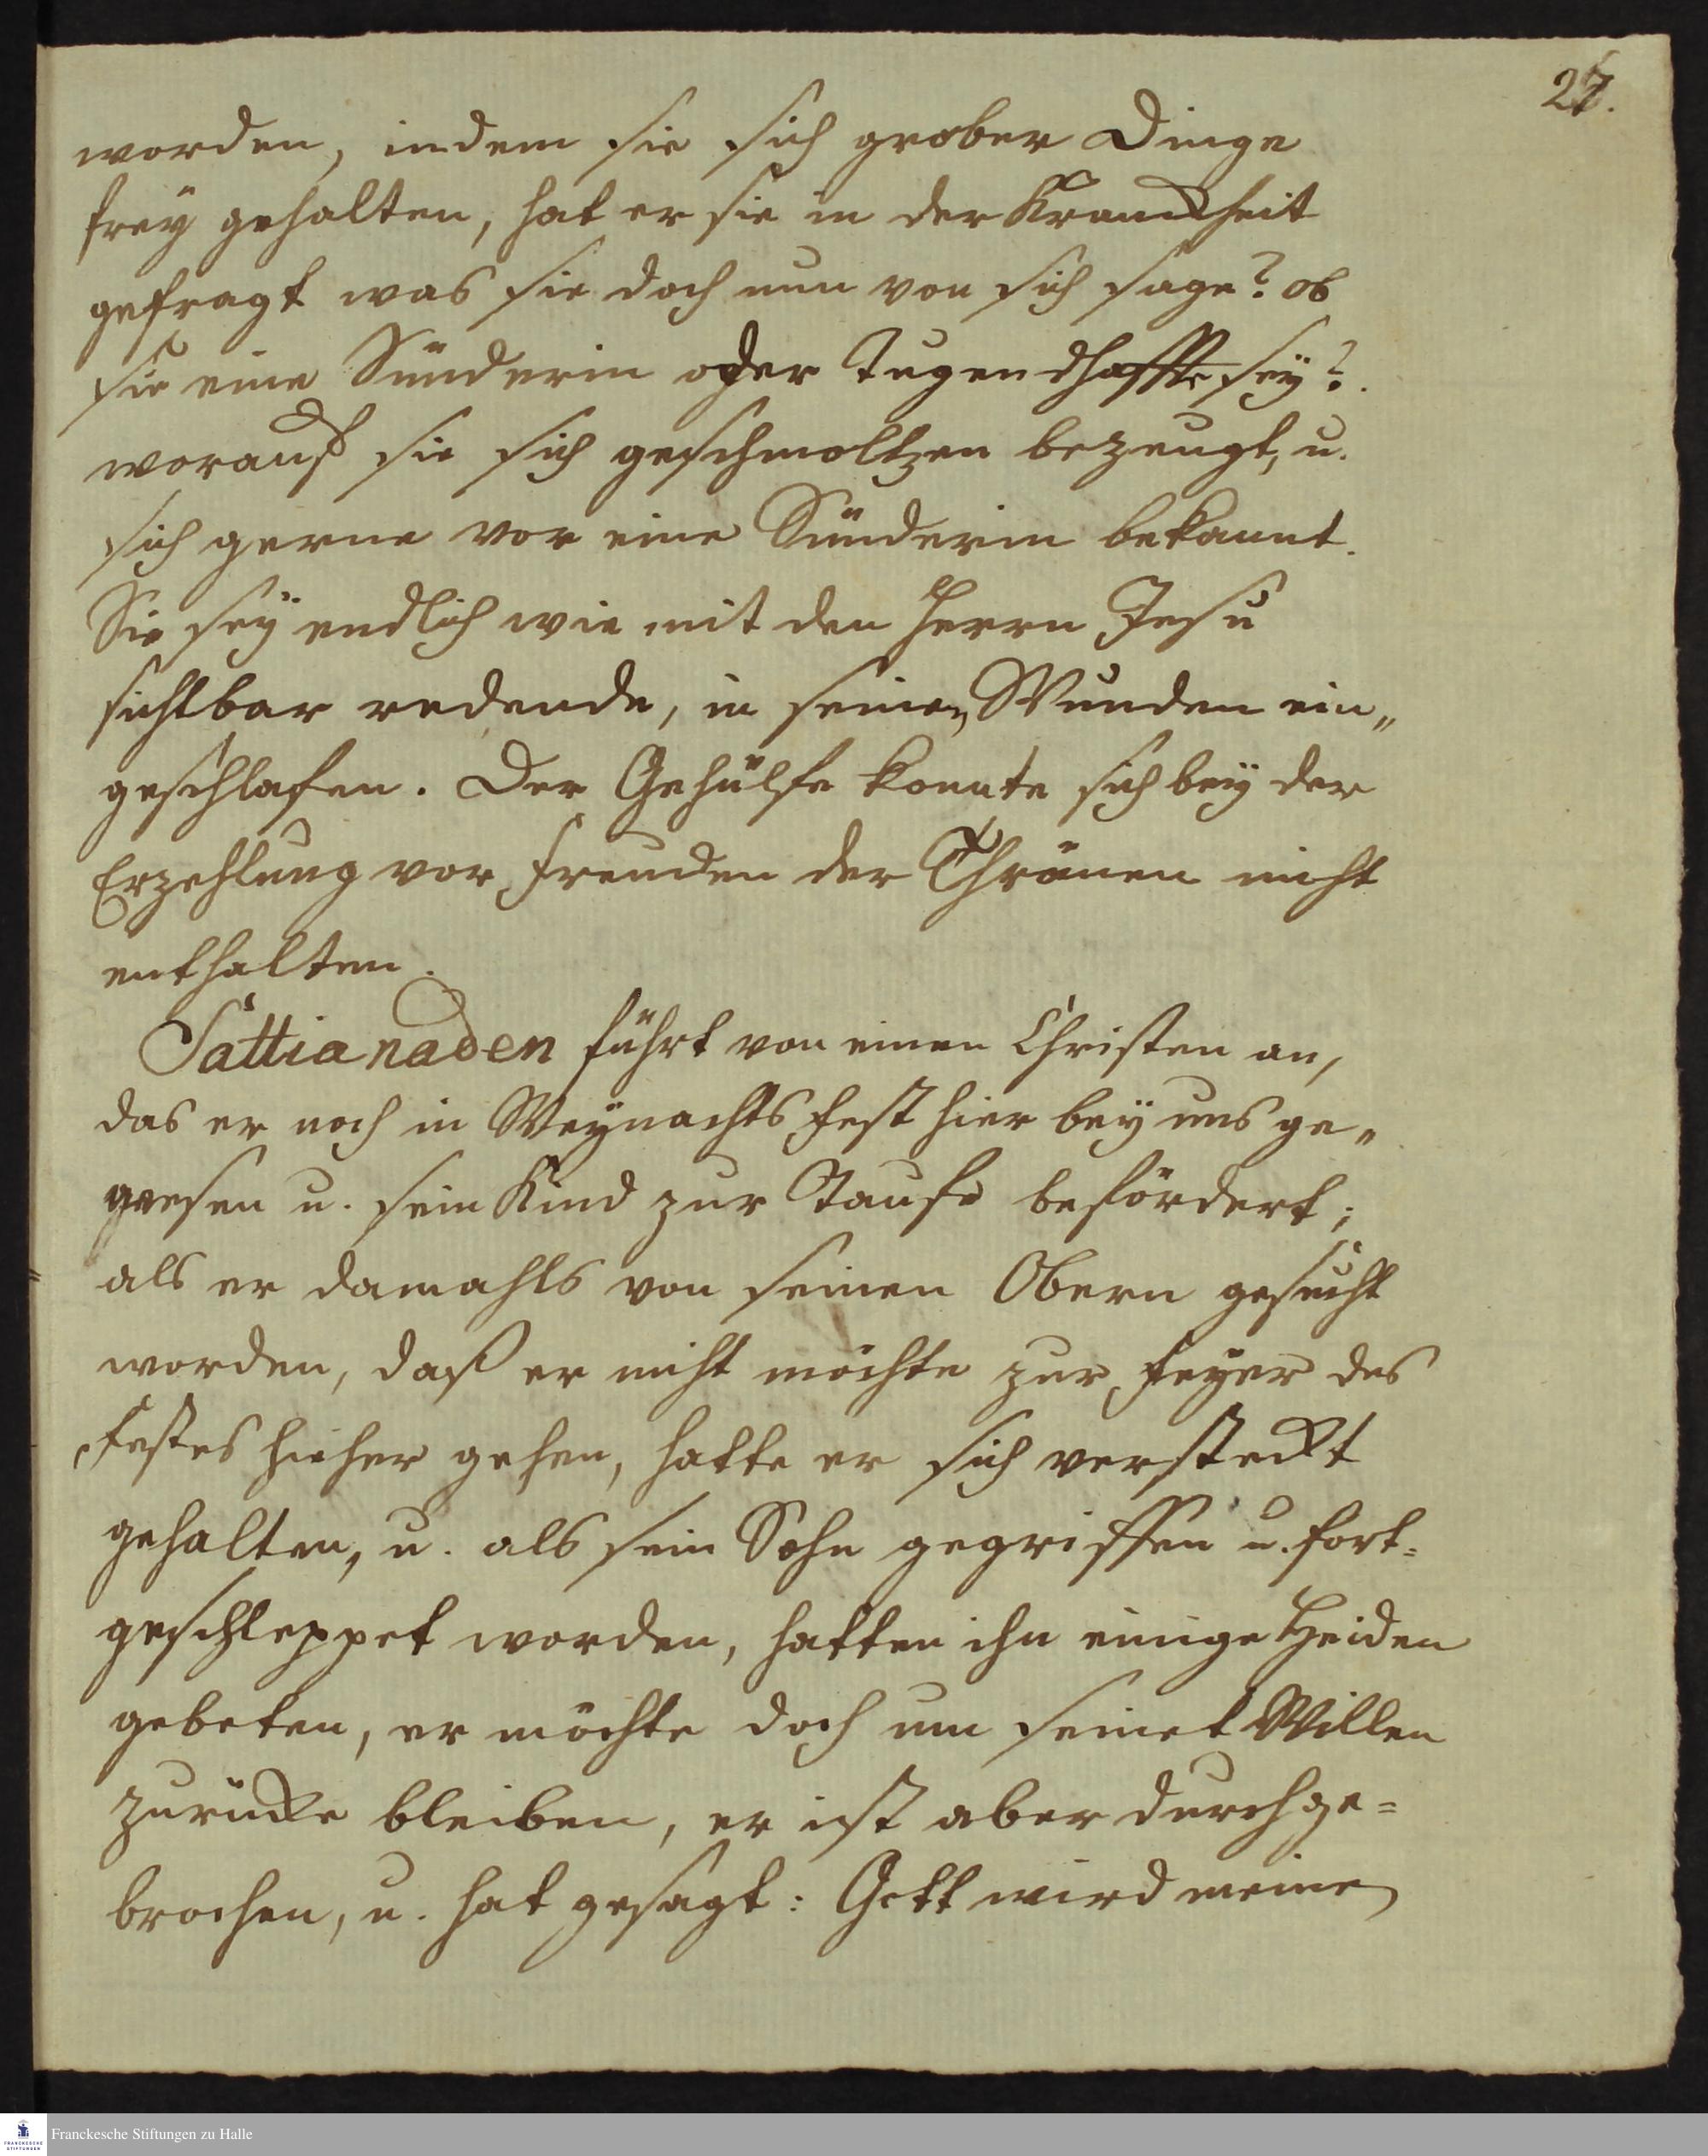 27.
worden, indem sie sich grober Dinge
frey gehalten, hat er sie in der Kranckheit
gefragt was sie doch nun von sich sage? ob
sie eine Sünderin oder Tugendhaffte sey?
worauf sie sich geschmoltzen bezeugt, u.
sich gerne vor eine Sünderin bekannt.
Sie sey endlich wie mit den Herrn Jesu
sichtbar redende, in seinen Wunden ein„
geschlafen. Der Gehülfe konnte sich bey der
Erzehlung vor Freuden der Thränen nicht
enthalten.
Sattianaden führt von einen Christen an,
das er noch in Weynachts Fest hier bey uns ge„
wesen u. sein Kind zur Taufe befördert;
als er damahls von seinen Obern gesucht
worden, daß er nicht möchte zur Feyer des
Festes hieher gehen, hatte er sich versteckt
gehalten, u. als sein Sohn gegriffen u. fort=
geschleppet worden, hatten ihn einige Heiden
gebeten, er möchte doch um seinet Willen
zurücke bleiben, er ist aber durchge=
brochen, u. hat gesagt: Gott wird meine
Franckesche Stiftungen zu Halle
FRANCKESCHE
STIFTUNGEN